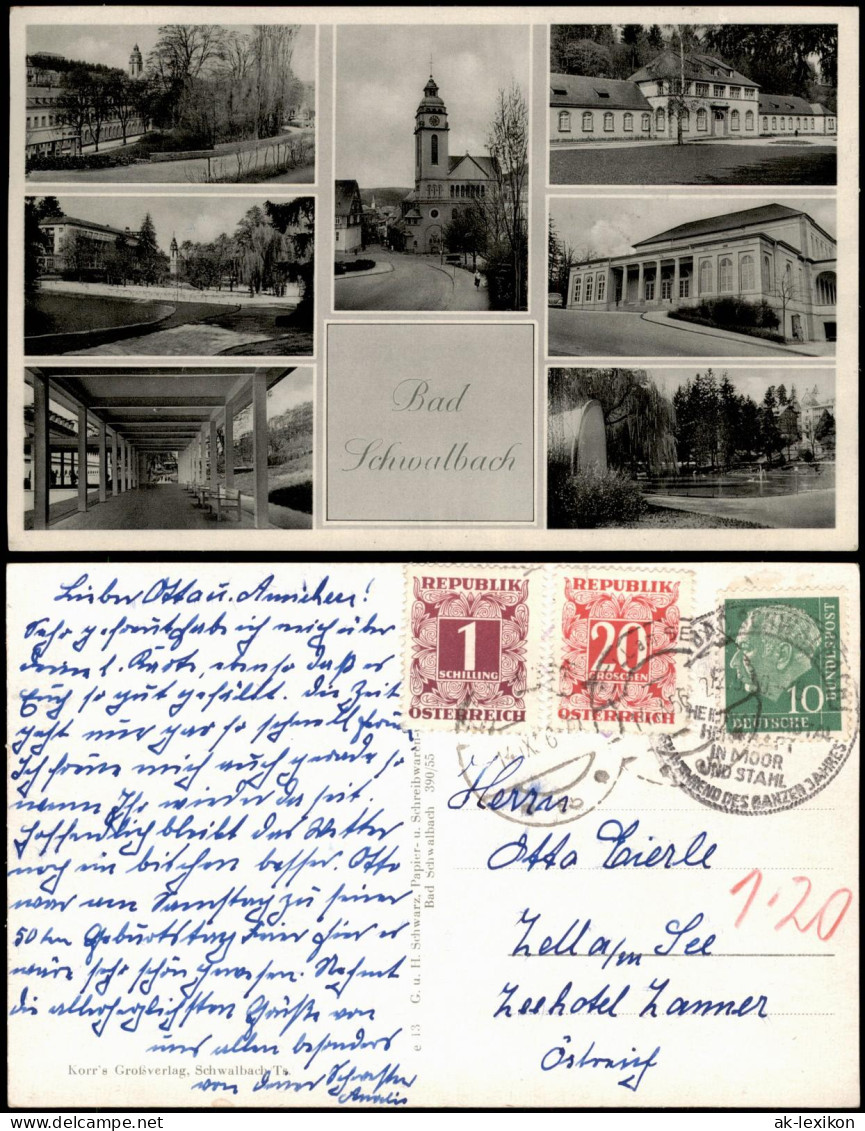 Bad
Schwalbach
Lieber Otto u. Annchen!
Sehr gefreut habe ich mich über
Deine l. Karte, ebenso daß es
Euch so gut gefällt. Die Zeit
geht nur gar so schnell
Ich freue mich auch gerade so
wenn Ihr wieder da seit.
Hoffendlich bleibt das Wetter
noch ein bischen besser. Otto
war am Samstag zu seiner
50ten Geburtstag Feier hier es
wäre sehr schön gewesen. Nehmt
die allerherzlichsten Grüße von
uns allen besonders
von Deiner Schwester
Korr's Großverlag, Schwalbach Ts.
e 13 G. u. H. Schwarz, Papier- u. Schreibwaren
Bad Schwalbach 390/55
REPUBLIK
1
SCHILLING
ÖSTERREICH
REPUBLIK
20
GROSCHEN
ÖSTERREICH
DEUTSCHE
BUNDESPOST
10
IN MOOR
UND STAHL
WÄHREND DES GANZEN JAHRES
Herrn
Otto Eierle
1.20
Zell a/m See
Seehotel Zanner
Östreich
ak-lexikon.com